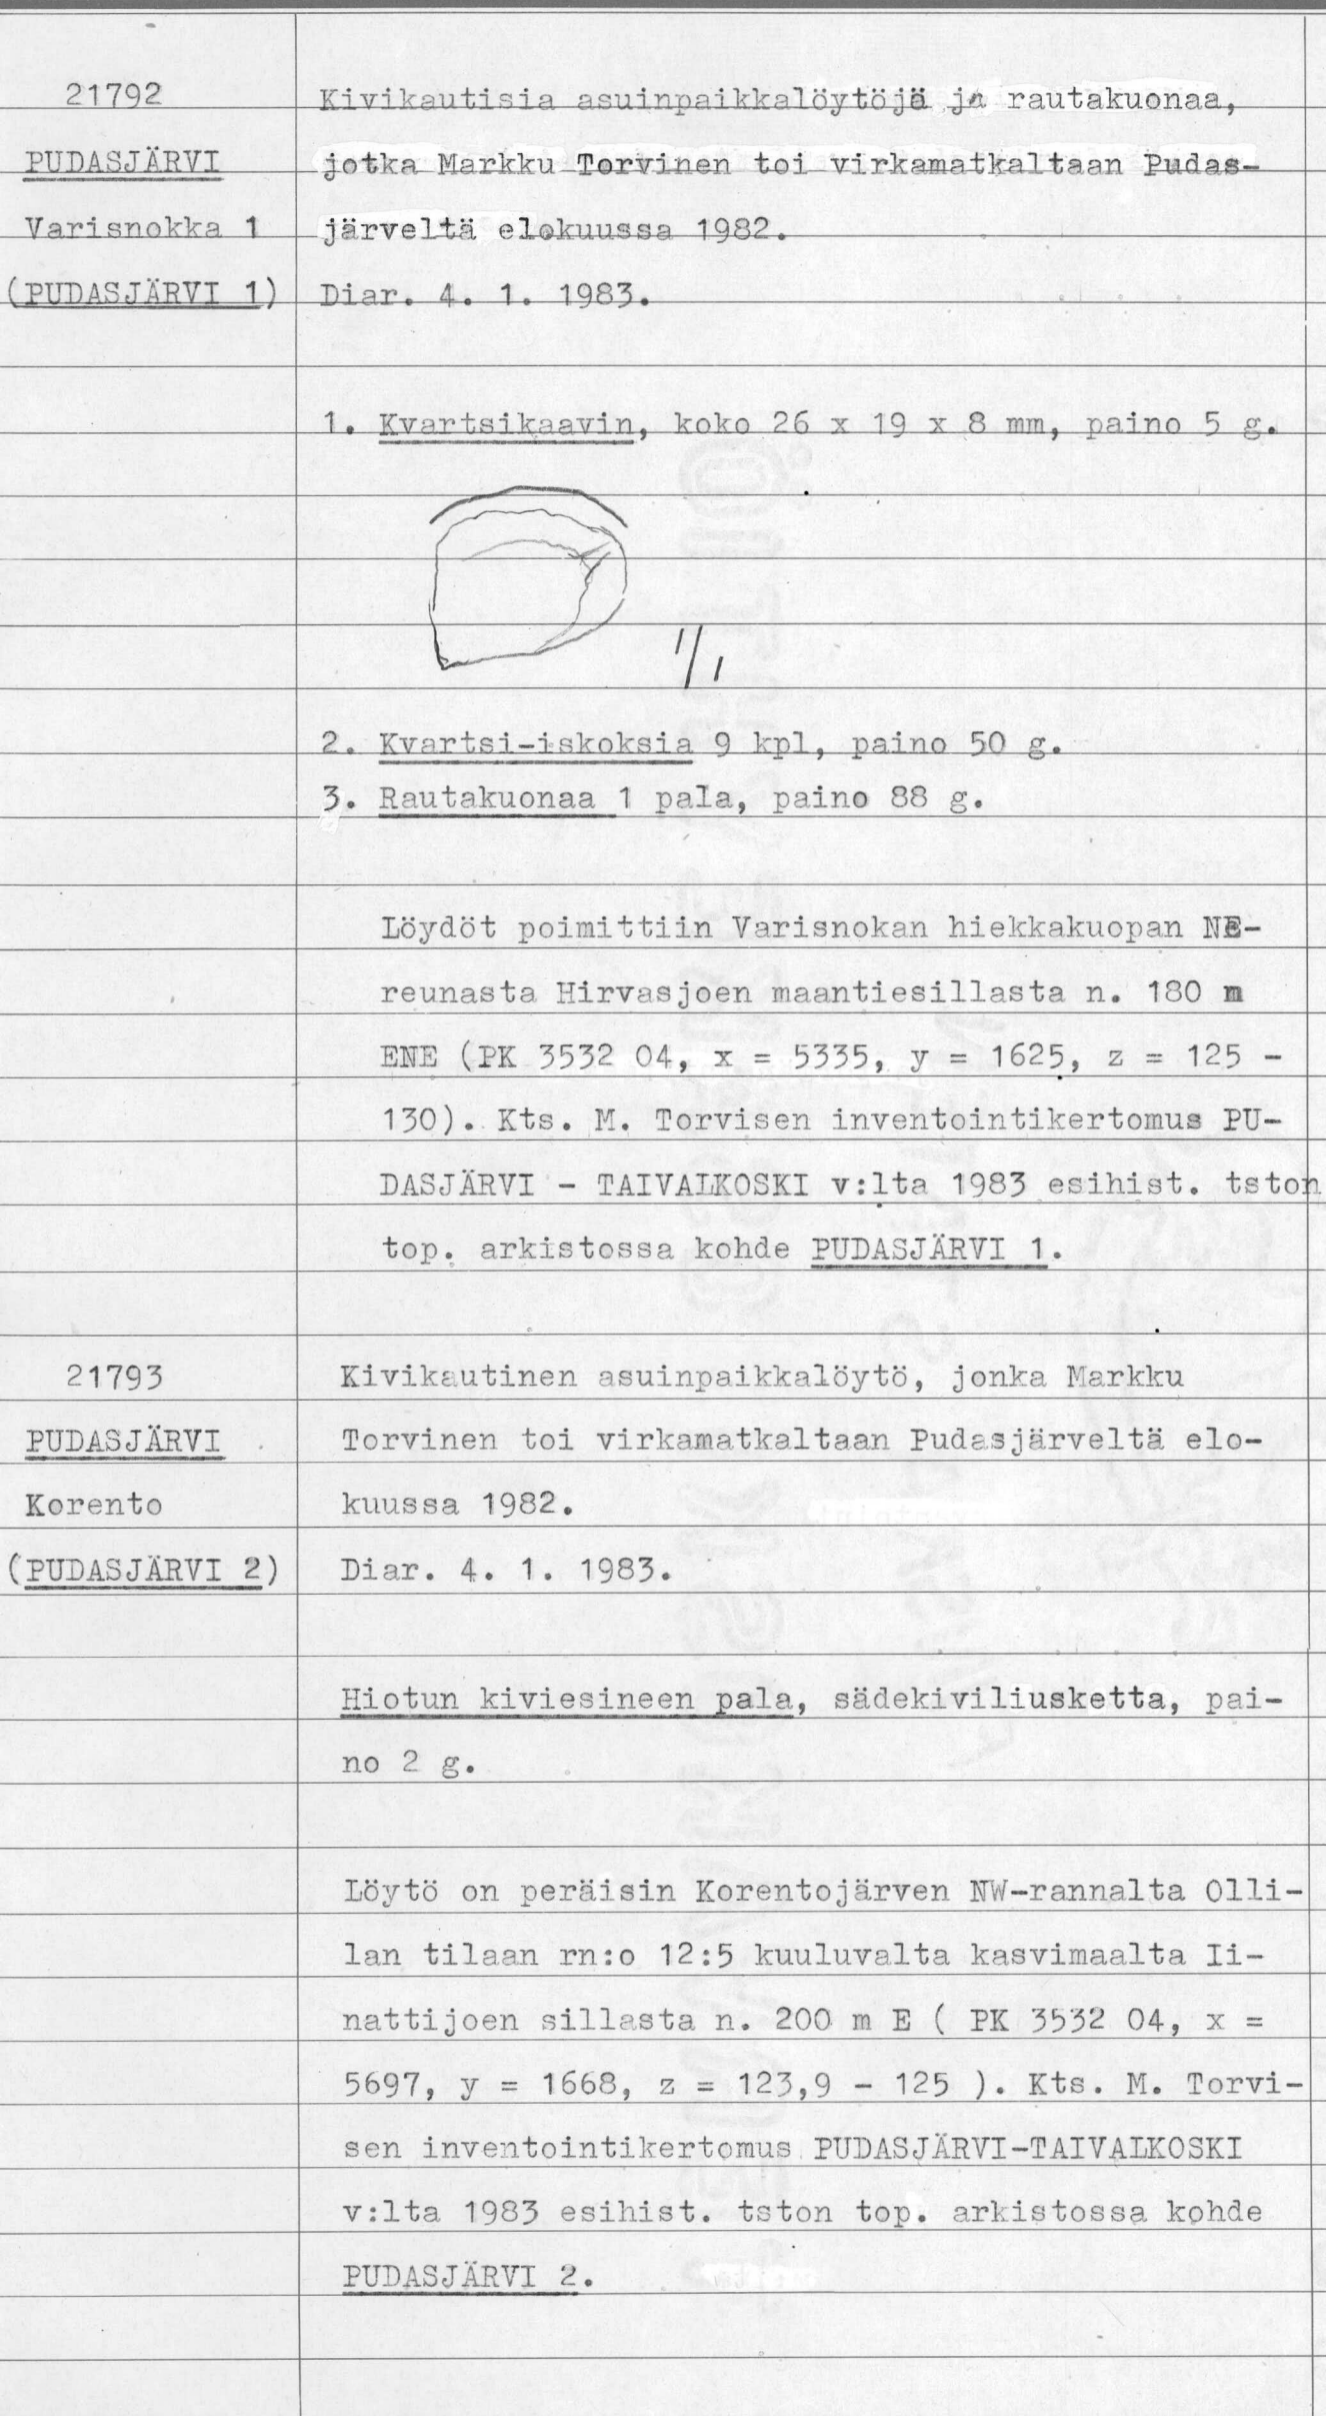 21792
PUDASJÄRVI
Varisnokka 1
(PUDASJÄRVI 1)
Kivikautisia asuinpaikkalöytöjä ja rautakuonaa,
jotka Markku Torvinen toi virkamatkaltaan Pudas-
järveltä elokuussa 1982.
Diar. 4. 1. 1983.
1. Kvartsikaavin, koko 26 x 19 x 8 mm, paino 5 g.
1/1
2. Kvartsi-iskoksia 9 kpl, paino 50 g.
3. Rautakuonaa 1 pala, paino 88 g.
Löydöt poimittiin Varisnokan hiekkakuopan NE-
reunasta Hirvasjoen maantiesillasta n. 180 m
ENE (PK 3532 04, x = 5335, y = 1625, z = 125 -
130). Kts. M. Torvisen inventointikertomus PU-
DASJÄRVI - TAIVALKOSKI v:lta 1983 esihist. tston
top. arkistossa kohde PUDASJÄRVI 1.
21793
PUDASJÄRVI
Korento
(PUDASJÄRVI 2)
Kivikautinen asuinpaikkalöytö, jonka Markku
Torvinen toi virkamatkaltaan Pudasjärveltä elo-
kuussa 1982.
Diar. 4. 1. 1983.
Hiotun kiviesineen pala, sädekiviliusketta, pai-
no 2 g.
Löytö on peräisin Korentojärven NW-rannalta Olli-
lan tilaan rn:o 12:5 kuuluvalta kasvimaalta Ii-
nattijoen sillasta n. 200 m E ( PK 3532 04, x =
5697, y = 1668, z = 123,9 - 125 ). Kts. M. Torvi-
sen inventointikertomus PUDASJÄRVI-TAIVALKOSKI
v:lta 1983 esihist. tston top. arkistossa kohde
PUDASJÄRVI 2.